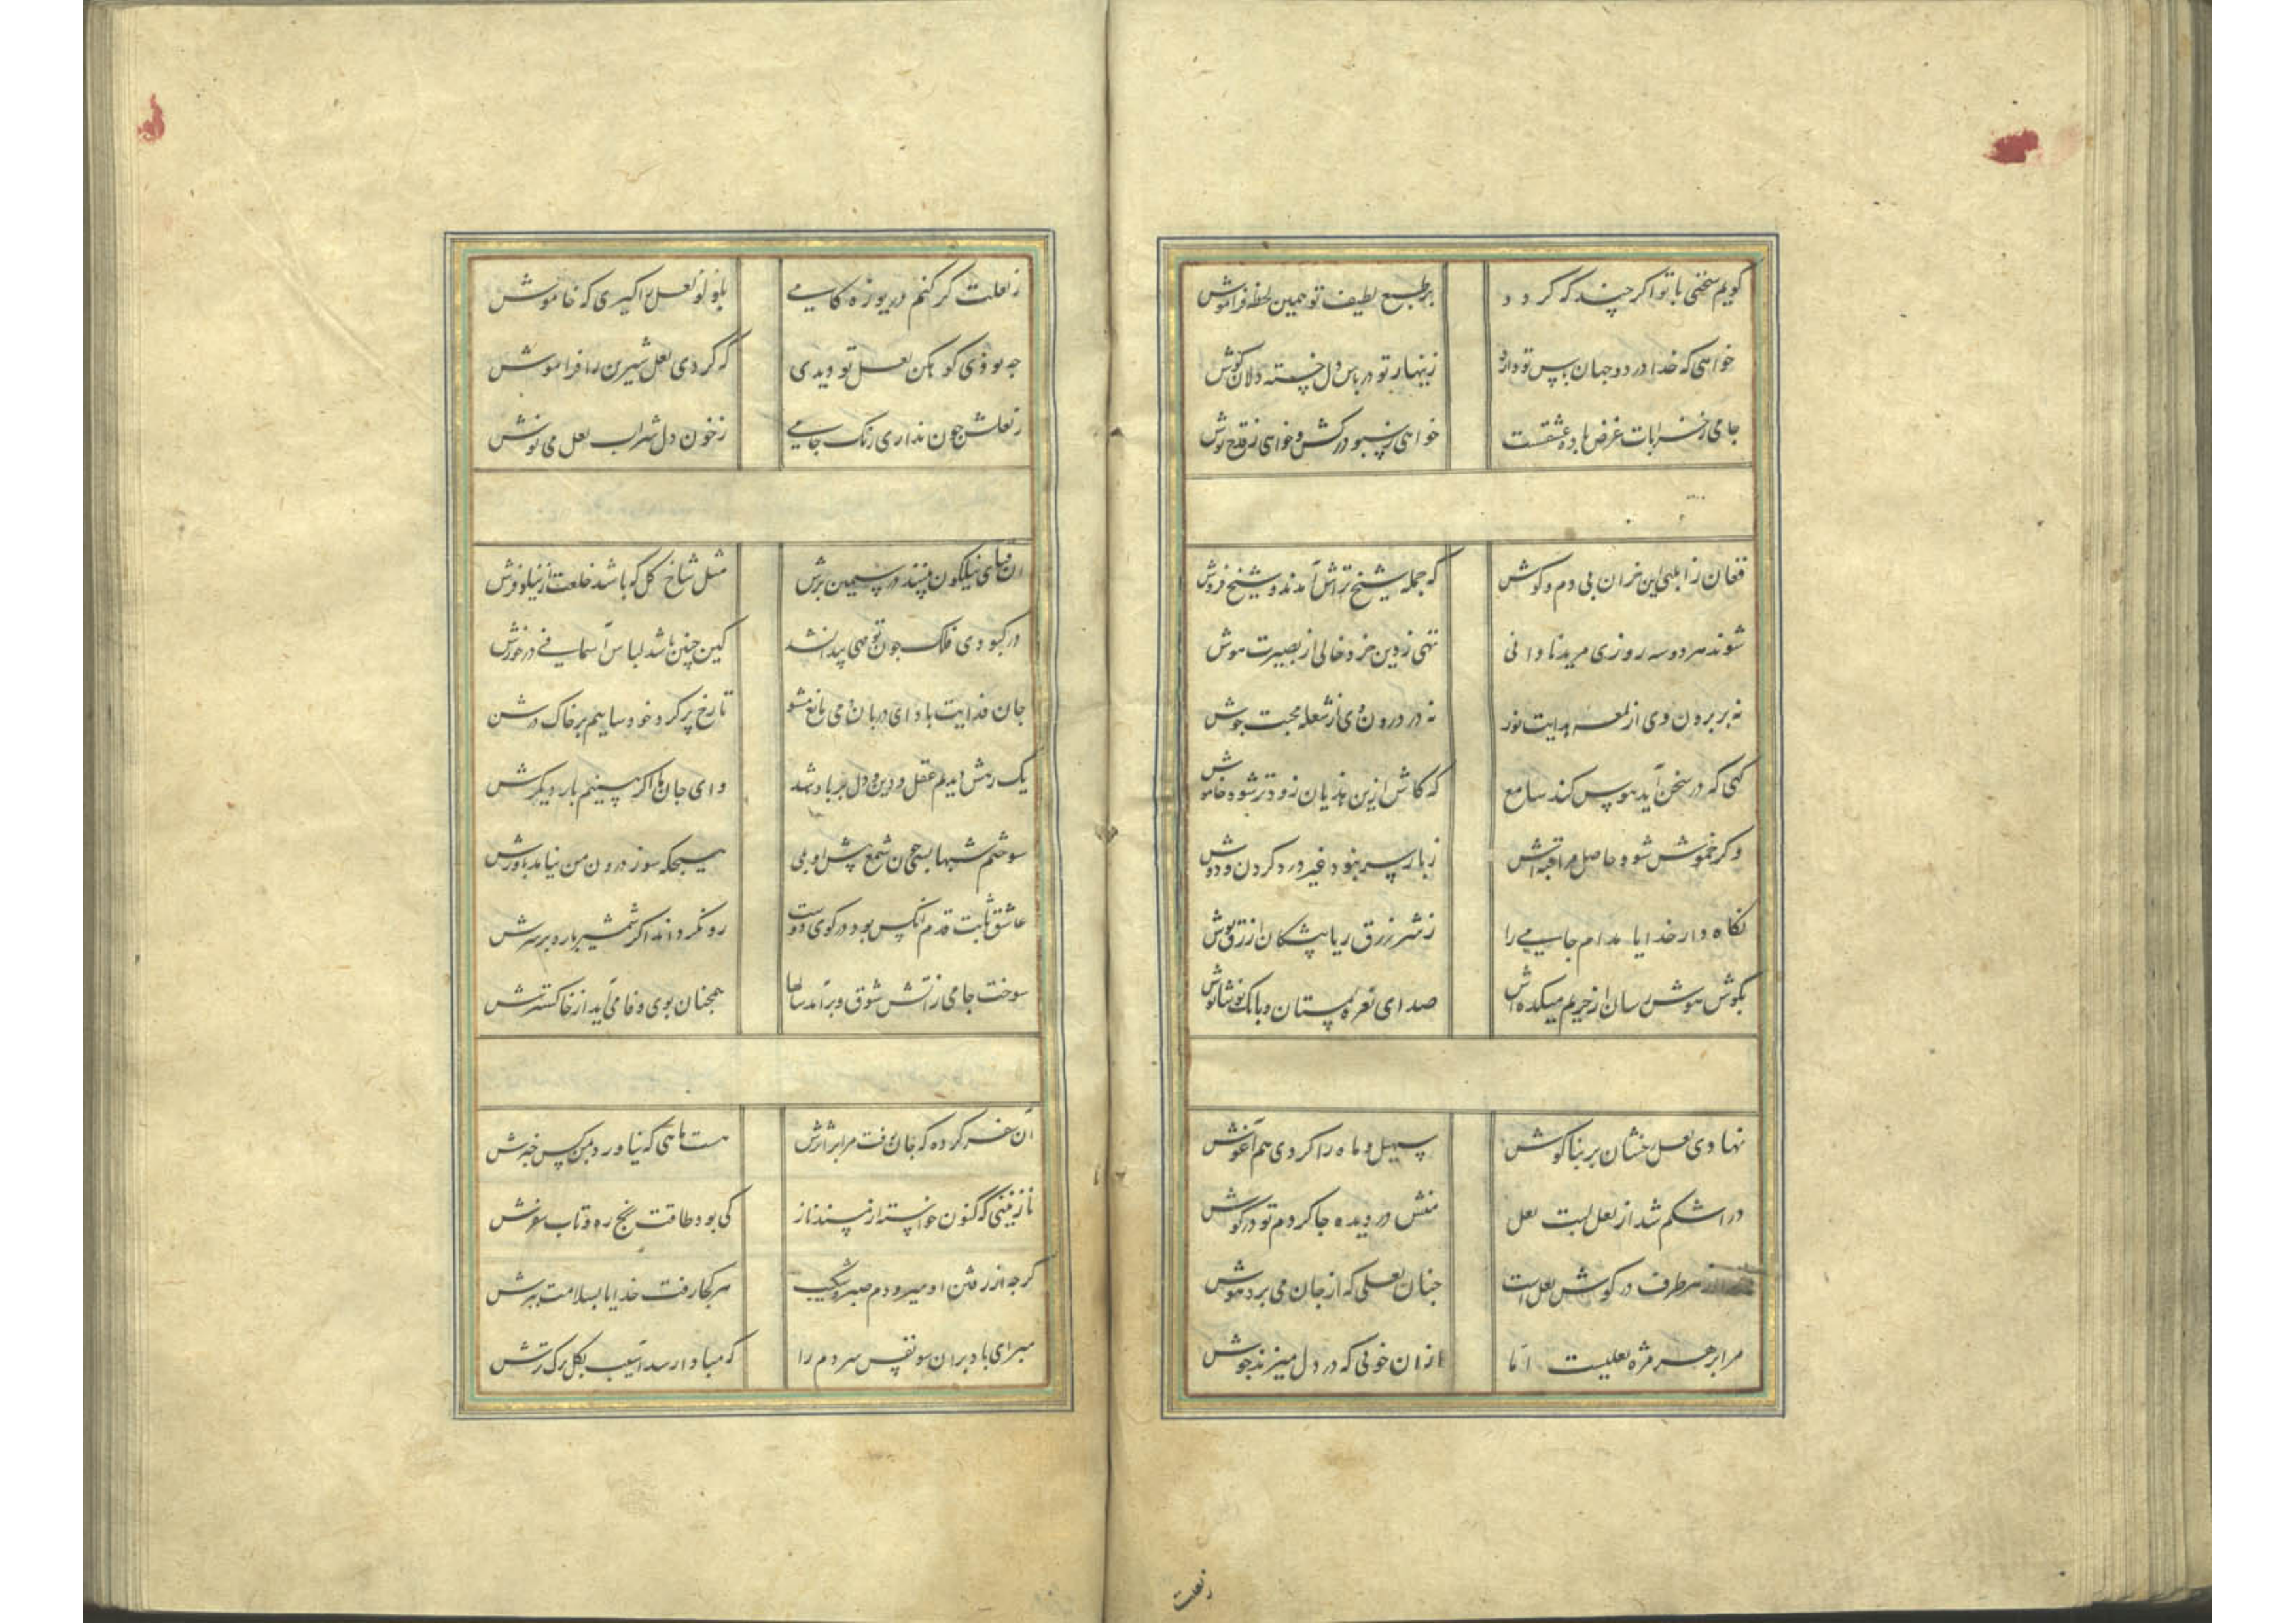 کویم سخنی با تو اکر چند که کردد   بر طبع لطیف تو همین لحظه فراموش
خواهی که خدا در دو جهان پاس تو دارد   زینهار تو در پاس دل خسته دلان کوش
جامی ز خرابات غرض باده عشقست   خواهی ز سبو درکش و خواهی ز قدح نوش
فغان ز ابلهی این خران بی دم و کوش   که جمله شیخ تراش آمدند و شیخ فروش
شوند هر دو سه روزی مرید نادانی   تهی ز دین خرد خالی از بصیرت هوش
نه بر برون وی از لمعه هدایت نور   نه در درون وی از شعله محبت جوش
کهی که در سخن آید هوس کند سامع   که کاش ازین هذیان زودتر شود خاموش
وکر خموش شود حاصل مراقبه اش   ز بار سر بنود غیر درد کردن و دوش
نکاه دار خدایا مدام جامی را   ز شر زرق ریا پیشکان ازرق پوش
بکوش هوش رسان از حریم میکده اش   صدای نعره مستان و بانک نوشانوش
نهادی لعل رخشان بر بناکوش   سهیل و ماه را کردی هم آغوش
در اشکم شد از لعل لبت لعل   منش در دیده جا کردم تو در کوش
از هر طرف در کوش لعل است   جنان لعلی که از جان می برد هوش
مرا بر هر مژه لعلیست اما   از ان خونی که در دل میزند جوش
ز لعلت
ز لعلت کر کنم دریوزه کامی   بلولو لعل را کیری که خاموش
جه بودی کوهکن لعل تو دیدی   که کردی لعل شیرین را فراموش
ز لعلش جون نداری رنک جامی   ز خون دل شراب لعل می نوش
آن قبای نیلکون بینید در سیمین برش   مثل شاخ کل که باشد خلعت از نیلوفرش
در کبودی فلک جون تو مهی پیدا نشد   کین چنین باشد لباس آسمانی در خورش
جان فدایت باد ای دربان دمی مانع مشو   تا رخ پر کرد خود سایم بر خاک درش
یک رهش دیدم عقل و دین و دل بر باد شد   وای جان ما اکر بینم بار دیکرش
سوختم شبها بسی جون شمع پیش او ولی   هیجکه سوز درون من نیامد باورش
عاشق ثابت قدم آنکس بود در کوی دوست   رو نکرداند اکر شمشیر بارد بر سرش
سوخت جامی ز آتش شوق و برآمد سالها   همجنان بوی وفا می آید از خاکسترش
آن سفر کرده که جان رفت مرا بر اثرش   هست ماهی که نیاورد بمن کس خبرش
نازنینی که کنون خواسته از مسند ناز   کی بود طاقت رنج ره و تاب سفرش
کرجه از رفتن او میرودم صبر و شکیب   هر کجا رفت خدایا بسلامت ببرش
مبر ای باد بران سو نفس سردم را   که مبادا رسد آسیب بکل برک ترش